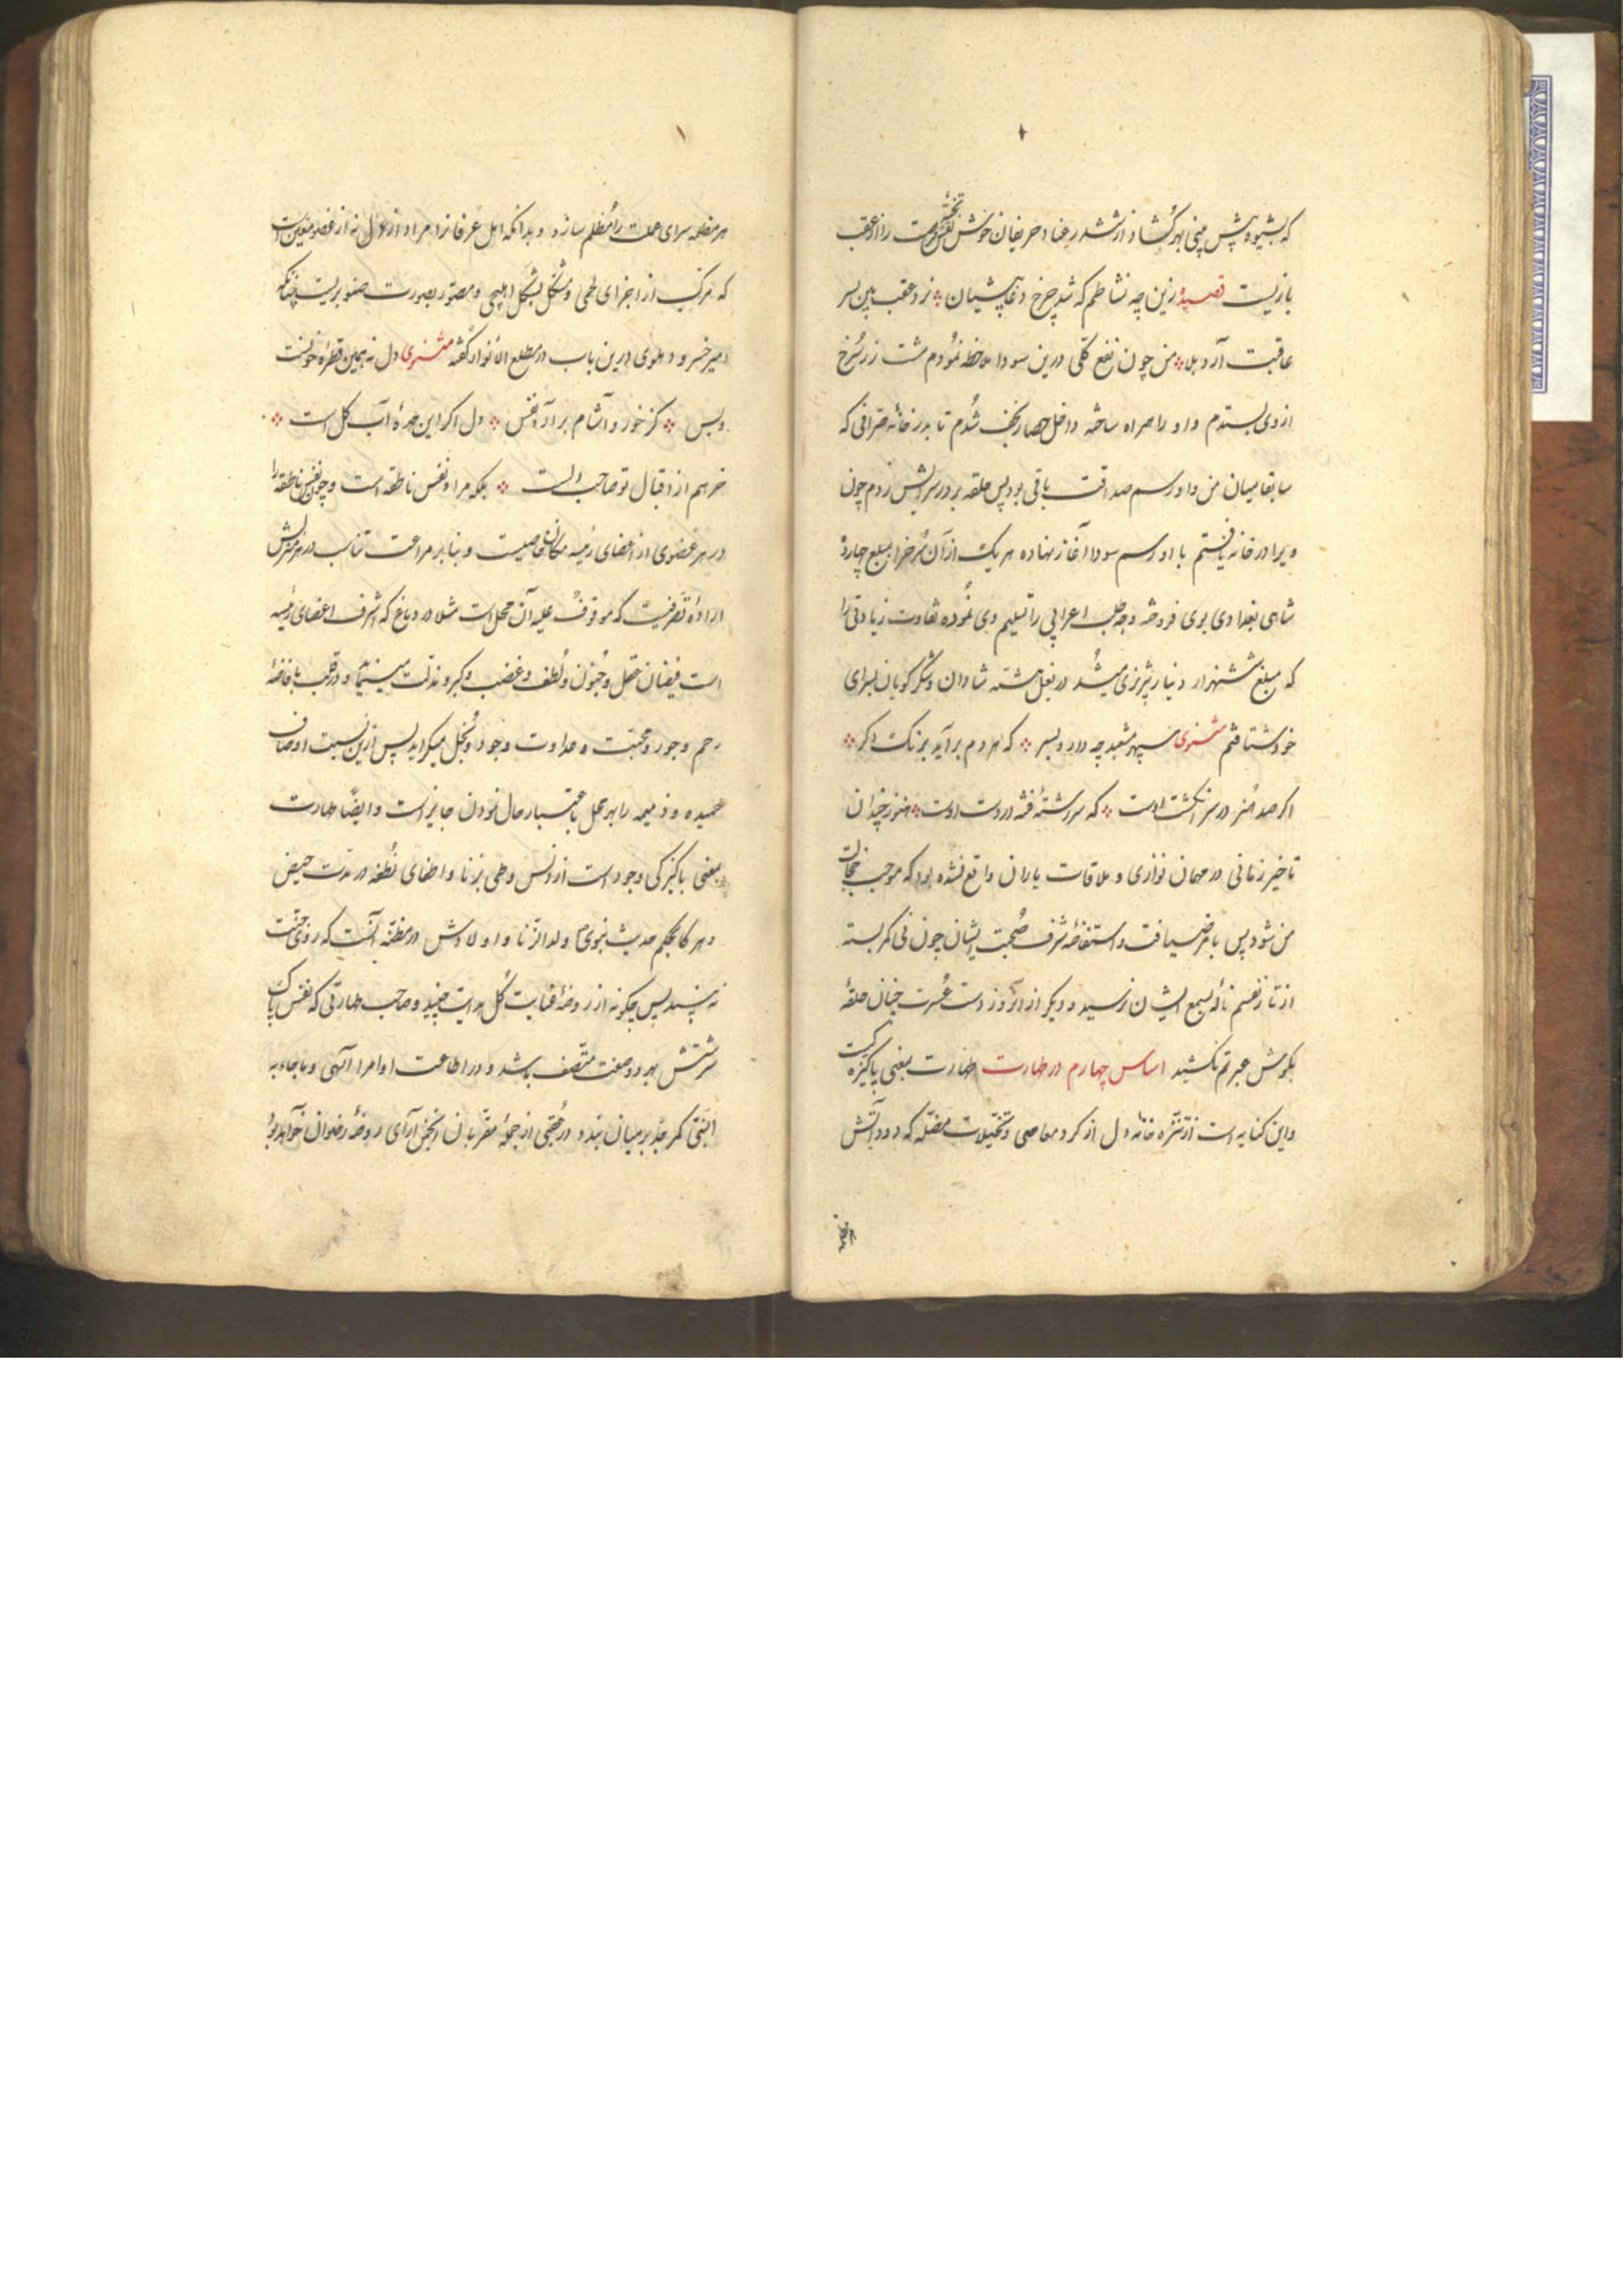 که بشیوه پیش بینی بهر گشاد از ششدر عنا و حریفان خوش نقش را از عقب
بازیست قصیده زین چه نشاطم که شد چرخ دغا پیشیان ۞ نزد عقب بین بسر
عاقبت آرد بلا ۞ من چون نفع کلی درین سودا ملاحظه نمودم مشت زر سرخ
از وی بستدم و او را همراه ساخته داخل حصار نجف شدم تا بدر خانه صرافی که
سابقا میان من و او رسم صداقت باقی بود پس حلقه بر در سرایش زدم چون
ویرا در خانه یافتم با او رسم سودا آغاز نهاده هر یک از آن سرخ را بمبلغ چهارده
شاهی بغدادی بوی فروخته وجه طلب اعرابی را تسلیم وی نموده تفاوت زیادتی را
که مبلغ ششهزار دینار تبریزی میشد در بغل هشته شادان و شکر کویان بسرای
خود شتافتم مثنوی سپهر مشعبد چه دارد بسر ۞ که هر دم برآید برنک دکر ۞
اکر صد هنر در سر انکشت اوست ۞ که سررشته فتنه در دست اوست ۞ هنوز چندان
تاخیر زمانی در مهمان نوازی و ملاقات یاران واقع نشده بود که موجب خجالت
من شود پس بامر ضیافت و استفاضه شرف صحبت ایشان چون نی کمر بسته
از تار نفسم ناله بسمع ایشان نرسید و دیکر از آنروز دست عسرت چنان حلقه
بکوش عبرتم نکشید اساس چهارم در طهارت طهارت بمعنی پاکیزه کیست
و این کنایه است از تنزه خانه دل از کرد معاصی و تخیلات مضله که دود آتش
هر مظلمه سرای عملت را مظلم سازد و بدانکه اهل عرفانرا مراد از دل نه از عضو معین است
که مرکب از اجزای لحمی و مشکل بشکل و مصور بصورت صنوبریست چنانکه
امیر خسرو دهلوی درین باب در مطلع الانوار گفته مثنوی دل نه همین قطره خونست
و بس ۞ کز خور و آشام برآرد نفس ۞ دل اکر این مهره آب و کل است ۞
خر هم از اقبال تو صاحب دلست ۞ بلکه مراد نفس ناطقه است و چون نفس ناطقه را
در هر عضوی از اعضای رئیسه مکان خاصیست و بنابر مراعت تناسب در هر منزلش
اراده تصرفیست که موقوف علیه آن محل است مثلا در دماغ که اشرف اعضای رئیسه
است فیضان عقل و جنون و لطف و غضب و کبر و مذلت مینماید و در قلب بافاضه
رحم و جور و محبت و عداوت و جود و بخل میکراید پس ازین نسبت اوصاف
حمیده و ذمیمه را بهر محل باعتبار حال نمودن جایز است و ایضا طهارت
بمعنی پاکیزکی وجود است از دنس وطی بزنا و اطفای نطفه در مدت حیض
و هر کا بحکم حدیث نبوی ولد الزنا و اولادش در مظنه آنست که روی جنت
نه بینند پس چکونه از روضه عنایت کل هدایت چیند و صاحب طهارتی که نفس پاک
سرشتش بهر دو صفت متصف باشد و در اطاعت اوامر الهی و ما جاء به
النبی کمر جد بر میان بندد در عقبی از جمله مقربان انجمن آرای روضه رضوان خواهد بود